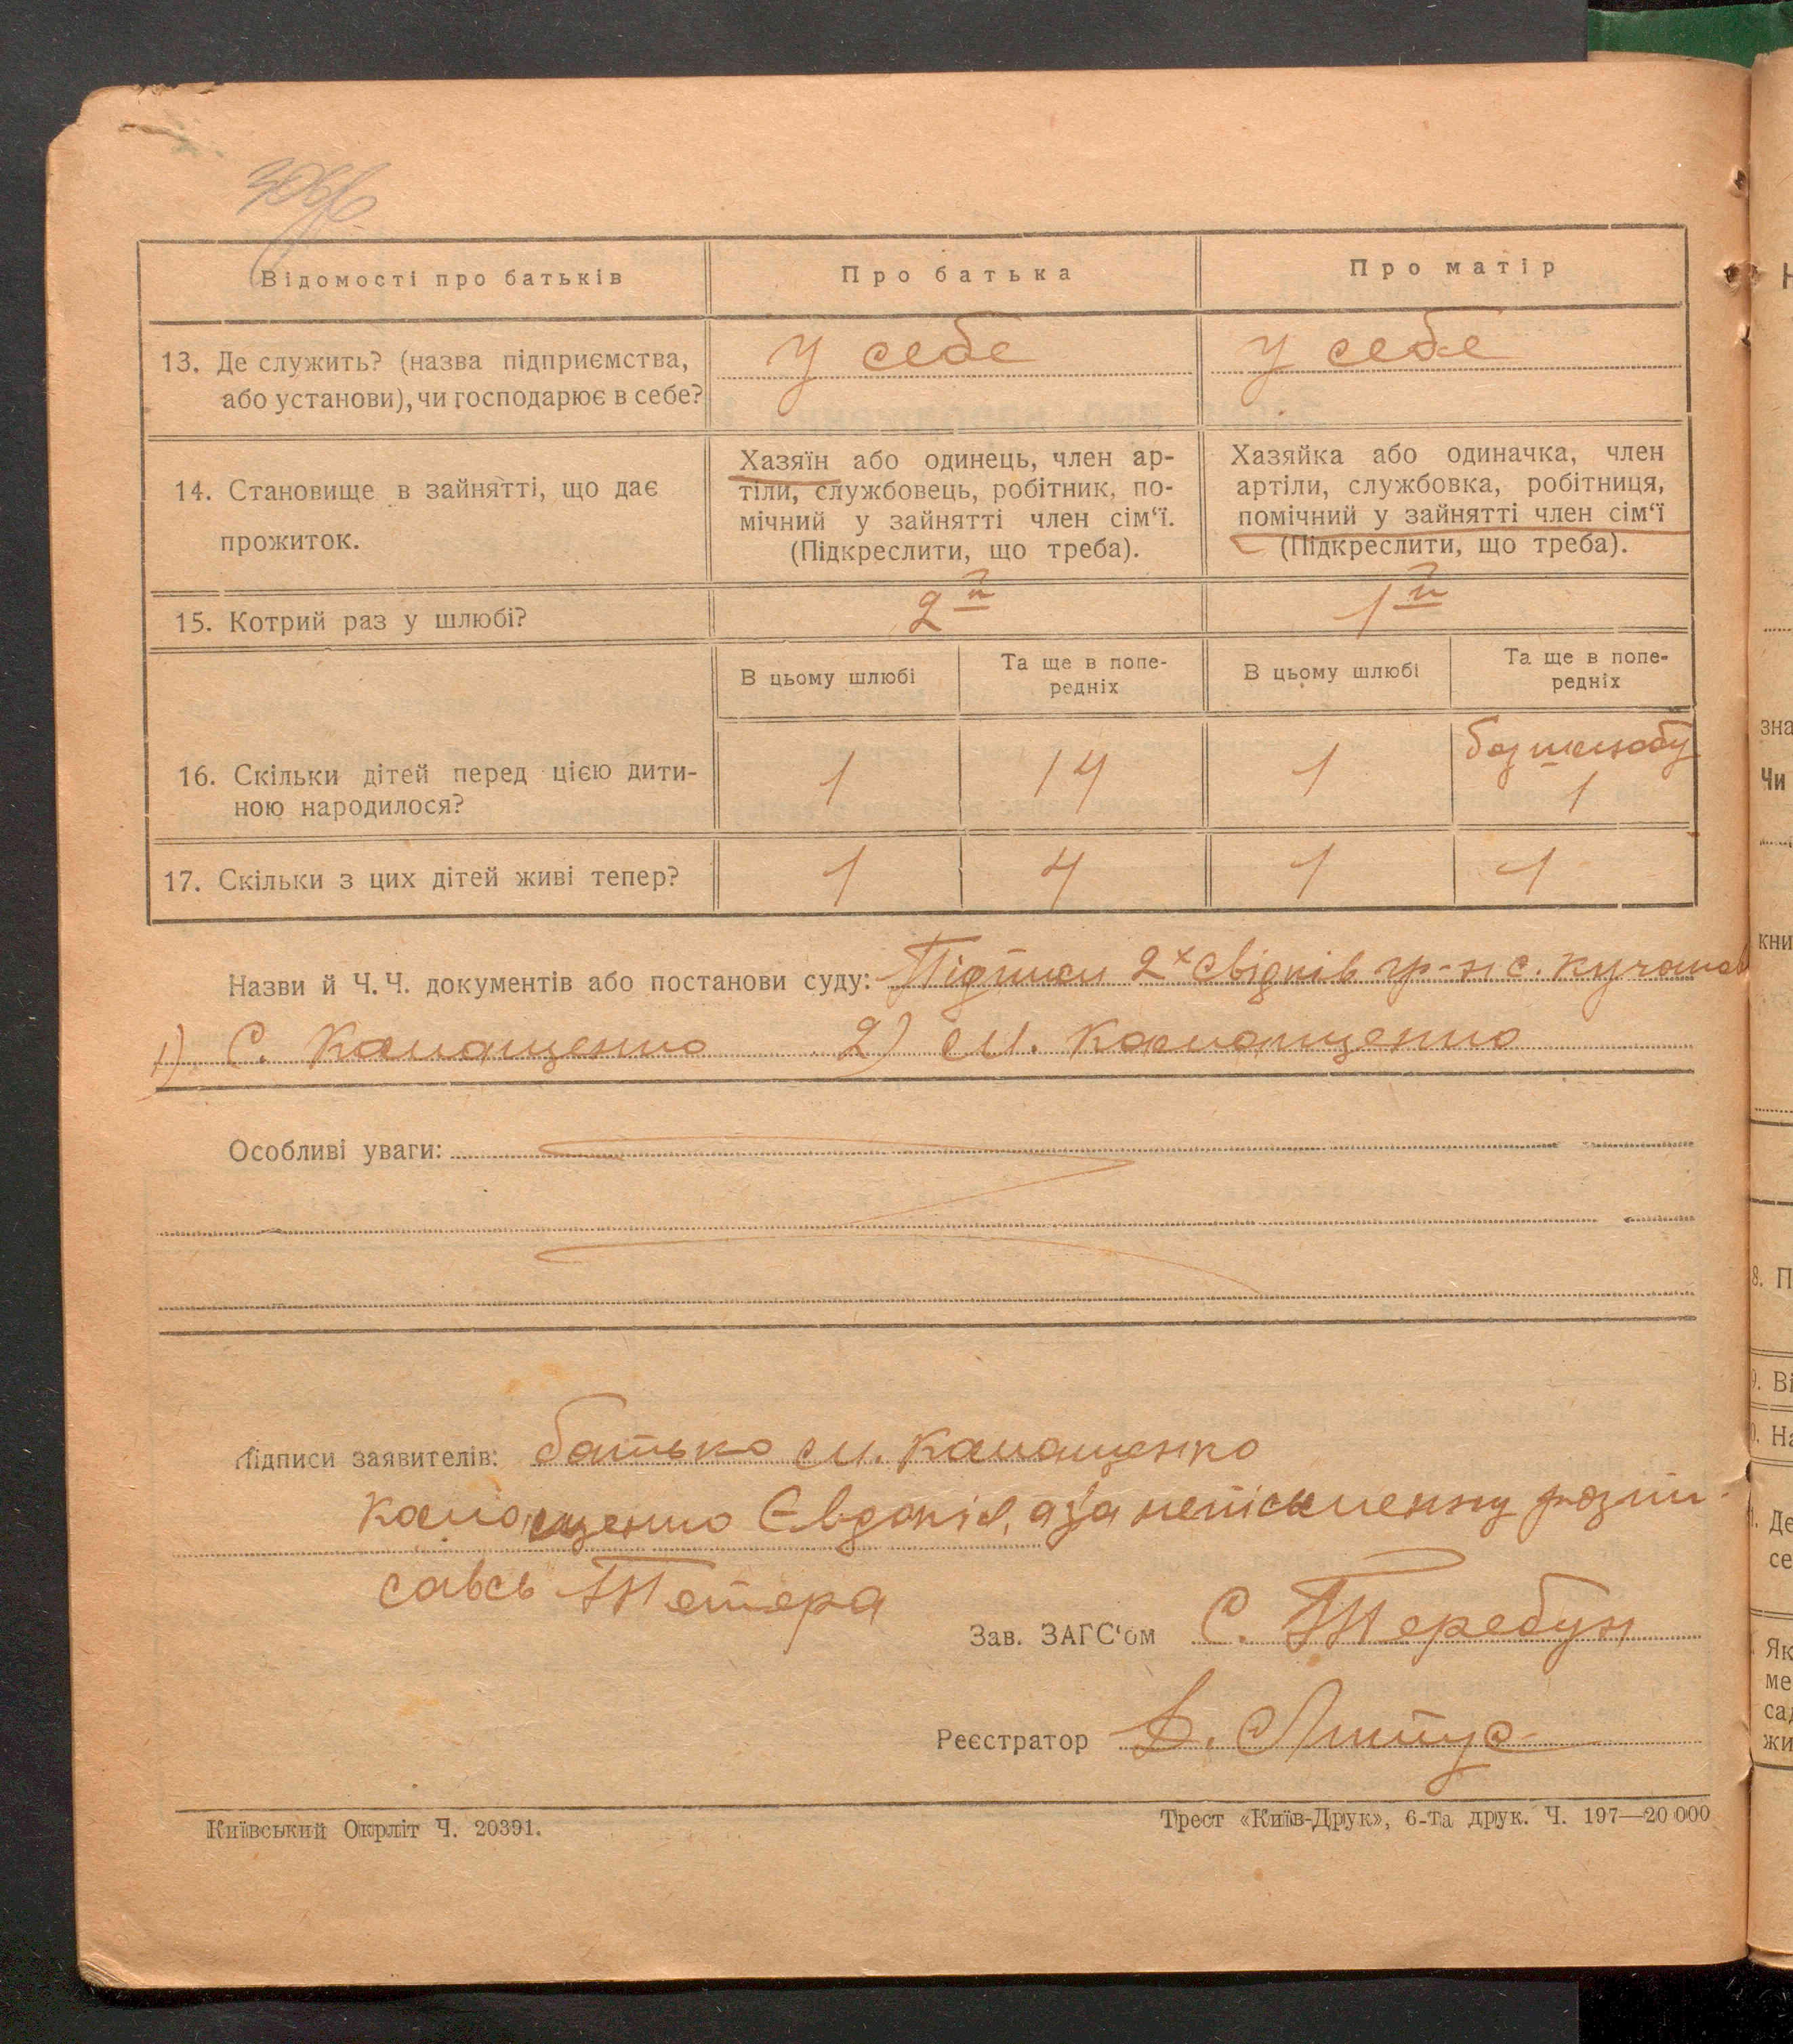 Відомості про батьків
Про батька
Про матір
13. Де служить? (назва підприємства,
або установи), чи господарює в себе?
у себе
у себе
14. Становище в зайнятті, що дає
прожиток.
Хазяїн або одинець, член ар-
тіли, службовець, робітник, по-
мічний у зайнятті член сім‘ї.
(Підкреслити, що треба).
Хазяйка або одиначка, член
артіли, службовка, робітниця,
помічний у зайнятті член сім‘ї
(Підкреслити, що треба).
15. Котрий раз у шлюбі?
2й
1й
В цьому шлюбі
Та ще в попе-
редніх
В цьому шлюбі
Та ще в попе-
редніх
16. Скільки дітей перед цією дити-
ною народилося?
1
14
1
без шлюбу
1
17. Скільки з цих дітей живі тепер?
1
4
1
1
Назви й Ч. Ч. документів або постанови суду: Підписи 2х свідків гр-н с.
1) С. 2) М.
Особливі уваги:
Підписи заявителів: батько М.
Євдокія, а за неписьменну розпи-
савсь Тетера
Зав. ЗАГС‘ом С. Теребун
Реєстратор
Київський Окрліт Ч. 20391.
Трест «Київ-Друк», 6-та друк. Ч. 197—20 000
зна
Чи
кни
8. П
9. Ві
0. На
Де
се
Як
ме
сад
жи